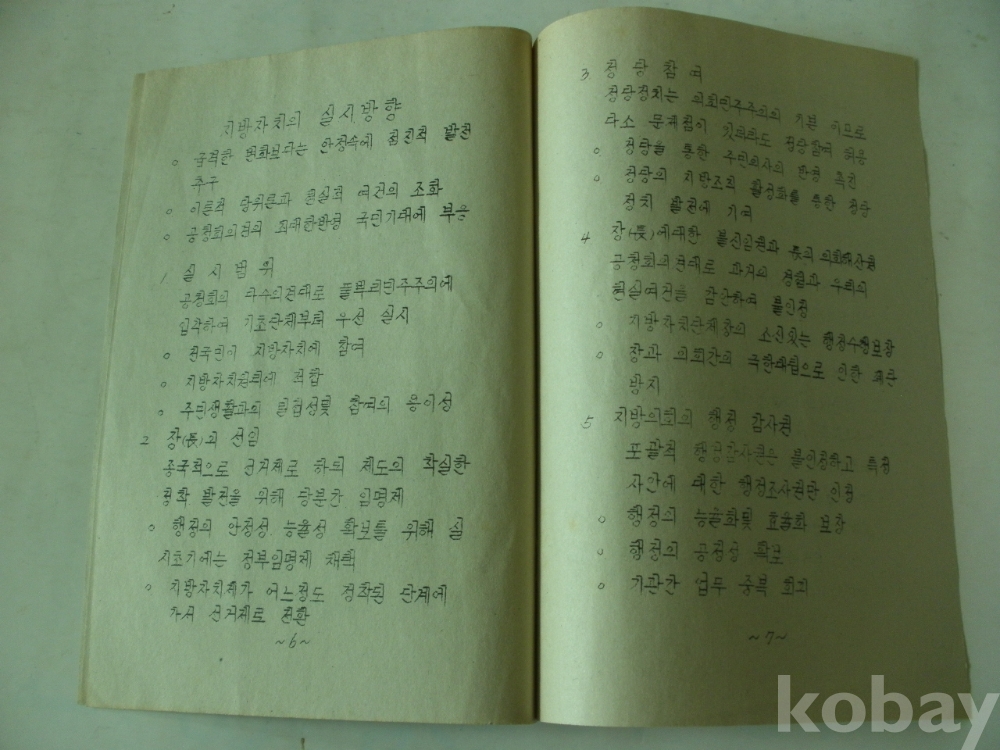 지방자치의 실시방향
○ 급격한 변화보다는 안정속에 점진적 발전
추구
○ 이론적 당위론과 현실적 여건의 조화
○ 공청회의견의 최대한반영 국민기대에 부응
1. 실시범위
공청회의 다수의견대로 풀뿌리민주주의에
입각하여 기초단체부터 우선 실시
○ 전국민이 지방자치에 참여
○ 지방자치원리에 적합
○ 주민생활과의 밀접성및 참여의 용이성
2 장(長)의 선임
종국적으로 선거제로 하되 제도의 확실한
정착 발전을 위해 당분간 임명제
○ 행정의 안정성. 능율성 확보를 위해 실
시초기에는 정부임명제 채택
○ 지방자치제가 어느정도 정착된 단계에
가서 선거제로 전환
~6~
3 정당참여
정당정치는 의회민주주의의 기본 이므로
다소 문제점이 있더라도 정당참여 허용
○ 정당을 통한 주민의사의 반영 촉진
○ 정당의 지방조직 활성화를 통한 정당
정치 발전에 기여
4 장(長)에대한 불신임권과 長의 의회해산권
공청회의견대로 과거의 경험과 우리의
현실여건을 감안하여 불인정
○ 지방자치단체장의 소신있는 행정수행보장
○ 장과 의회간의 극한대립으로 인한 혼란
방지
5 지방의회의 행정 감사권
포괄적 행정감사권은 불인정하고 특정
사안에 대한 행정조사권만 인정
○ 행정의 능률화및 효율화 보장
○ 행정의 공정성 확보
○ 기관간 업무 중복 회피
~7~
kobay